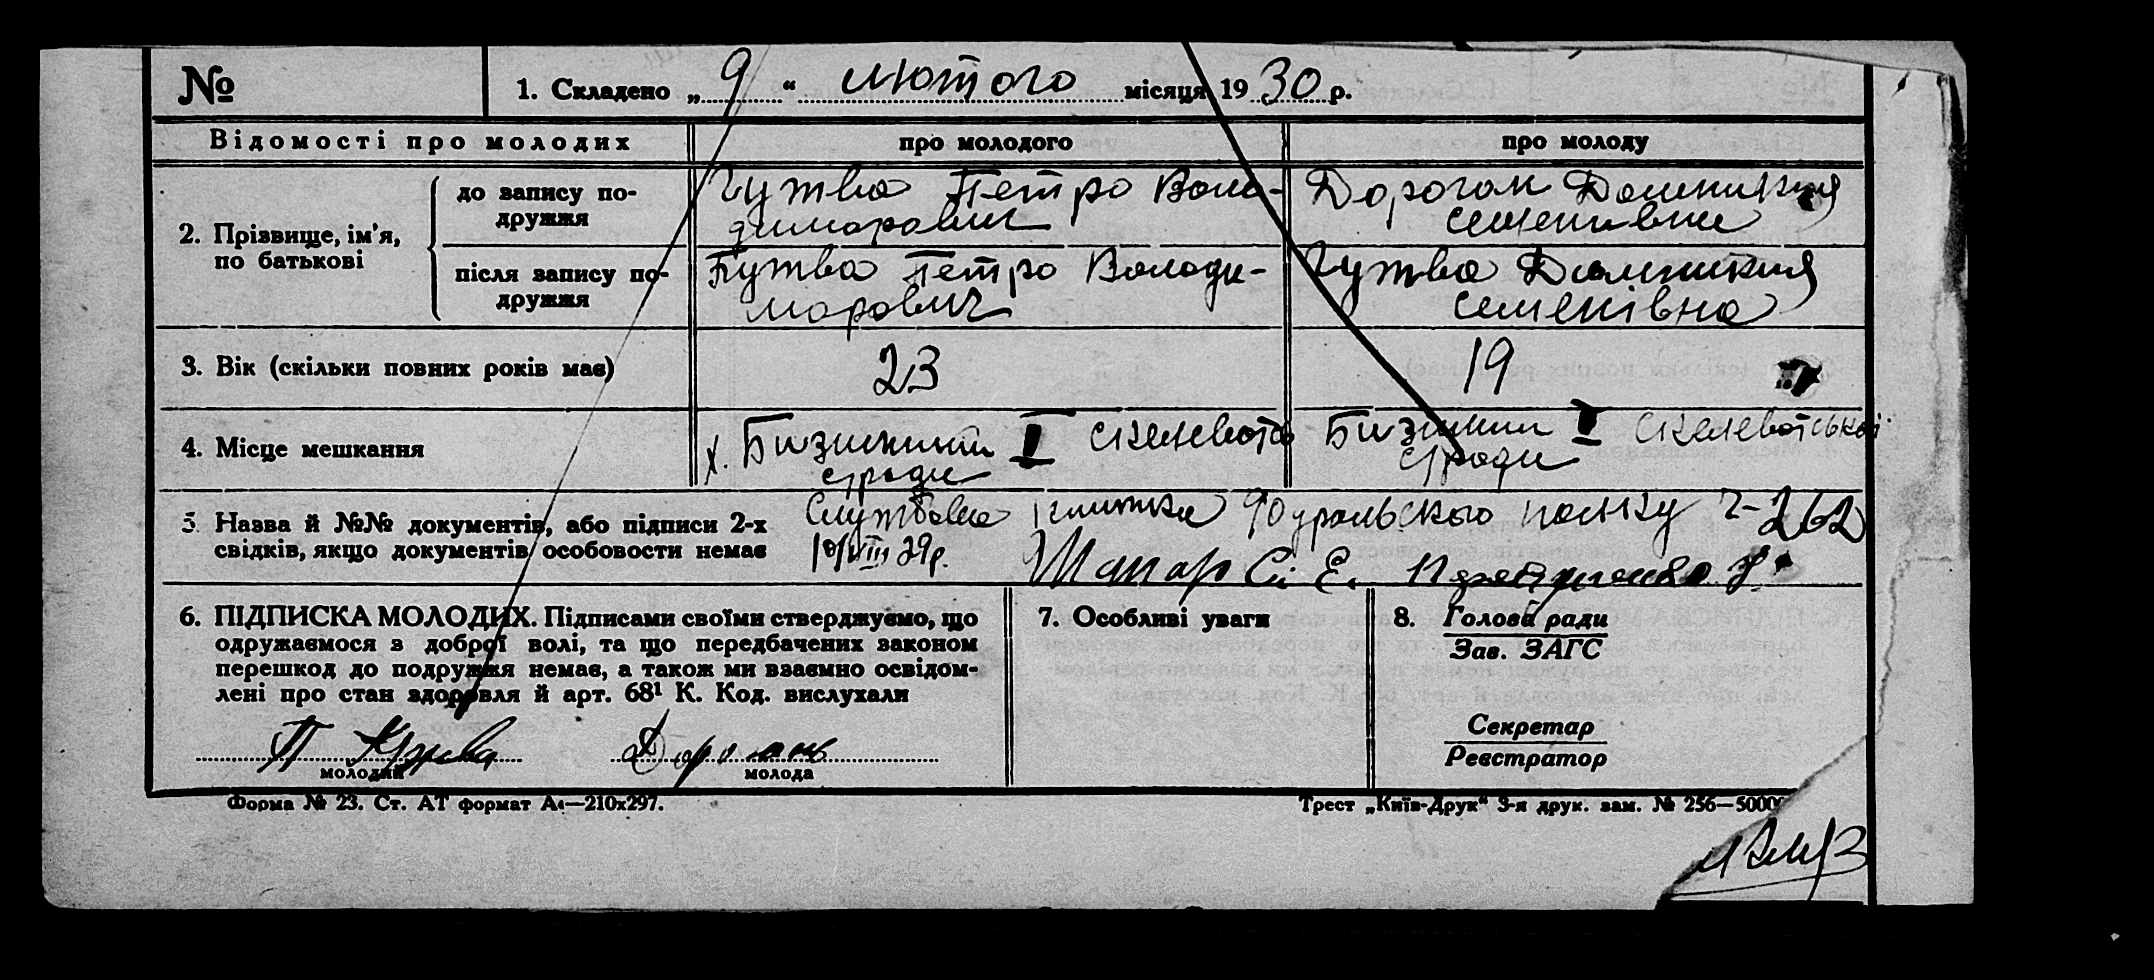 № 1. Складено „ 9 “ лютого місяця 19 30 р.
Відомості про молодих про молодого про молоду
2. Прізвище, ім'я, по батькові
до запису по-
дружжя
Гутва Петро Воло-
диморович
Дорогань
семенивни
після запису по-
дружжя
Гутва Петро Володи-
морович
Гутва
семенівна
3. Вік (скільки повних років має) 23 19
4. Місце мешкання
х. II
сіради
II Скелеватської
сіради
5. Назва й №№ документів, або підписи 2-х
свідків, якщо документів особовости немає
Службова книжка 90 уральского полку 262
10/VIII 29р.
Шапар Є.
6. ПІДПИСКА МОЛОДИХ. Підписами своїми стверджуємо, що
одружаємося з доброї волі, та що передбачених законом
перешкод до подружжя немає, а також ми взаємно освідом-
лені про стан здоровля й арт. 68¹ К. Код. вислухали
П
молодий
Дорогань
молода
7. Особливі уваги
8. Голова ради
Зав. ЗАГС
Секретар
Реєстратор
Форма № 23. Ст. АТ формат А4—210х297.
Трест „Київ-Друк“ 3-я друк. зам. № 256—5000